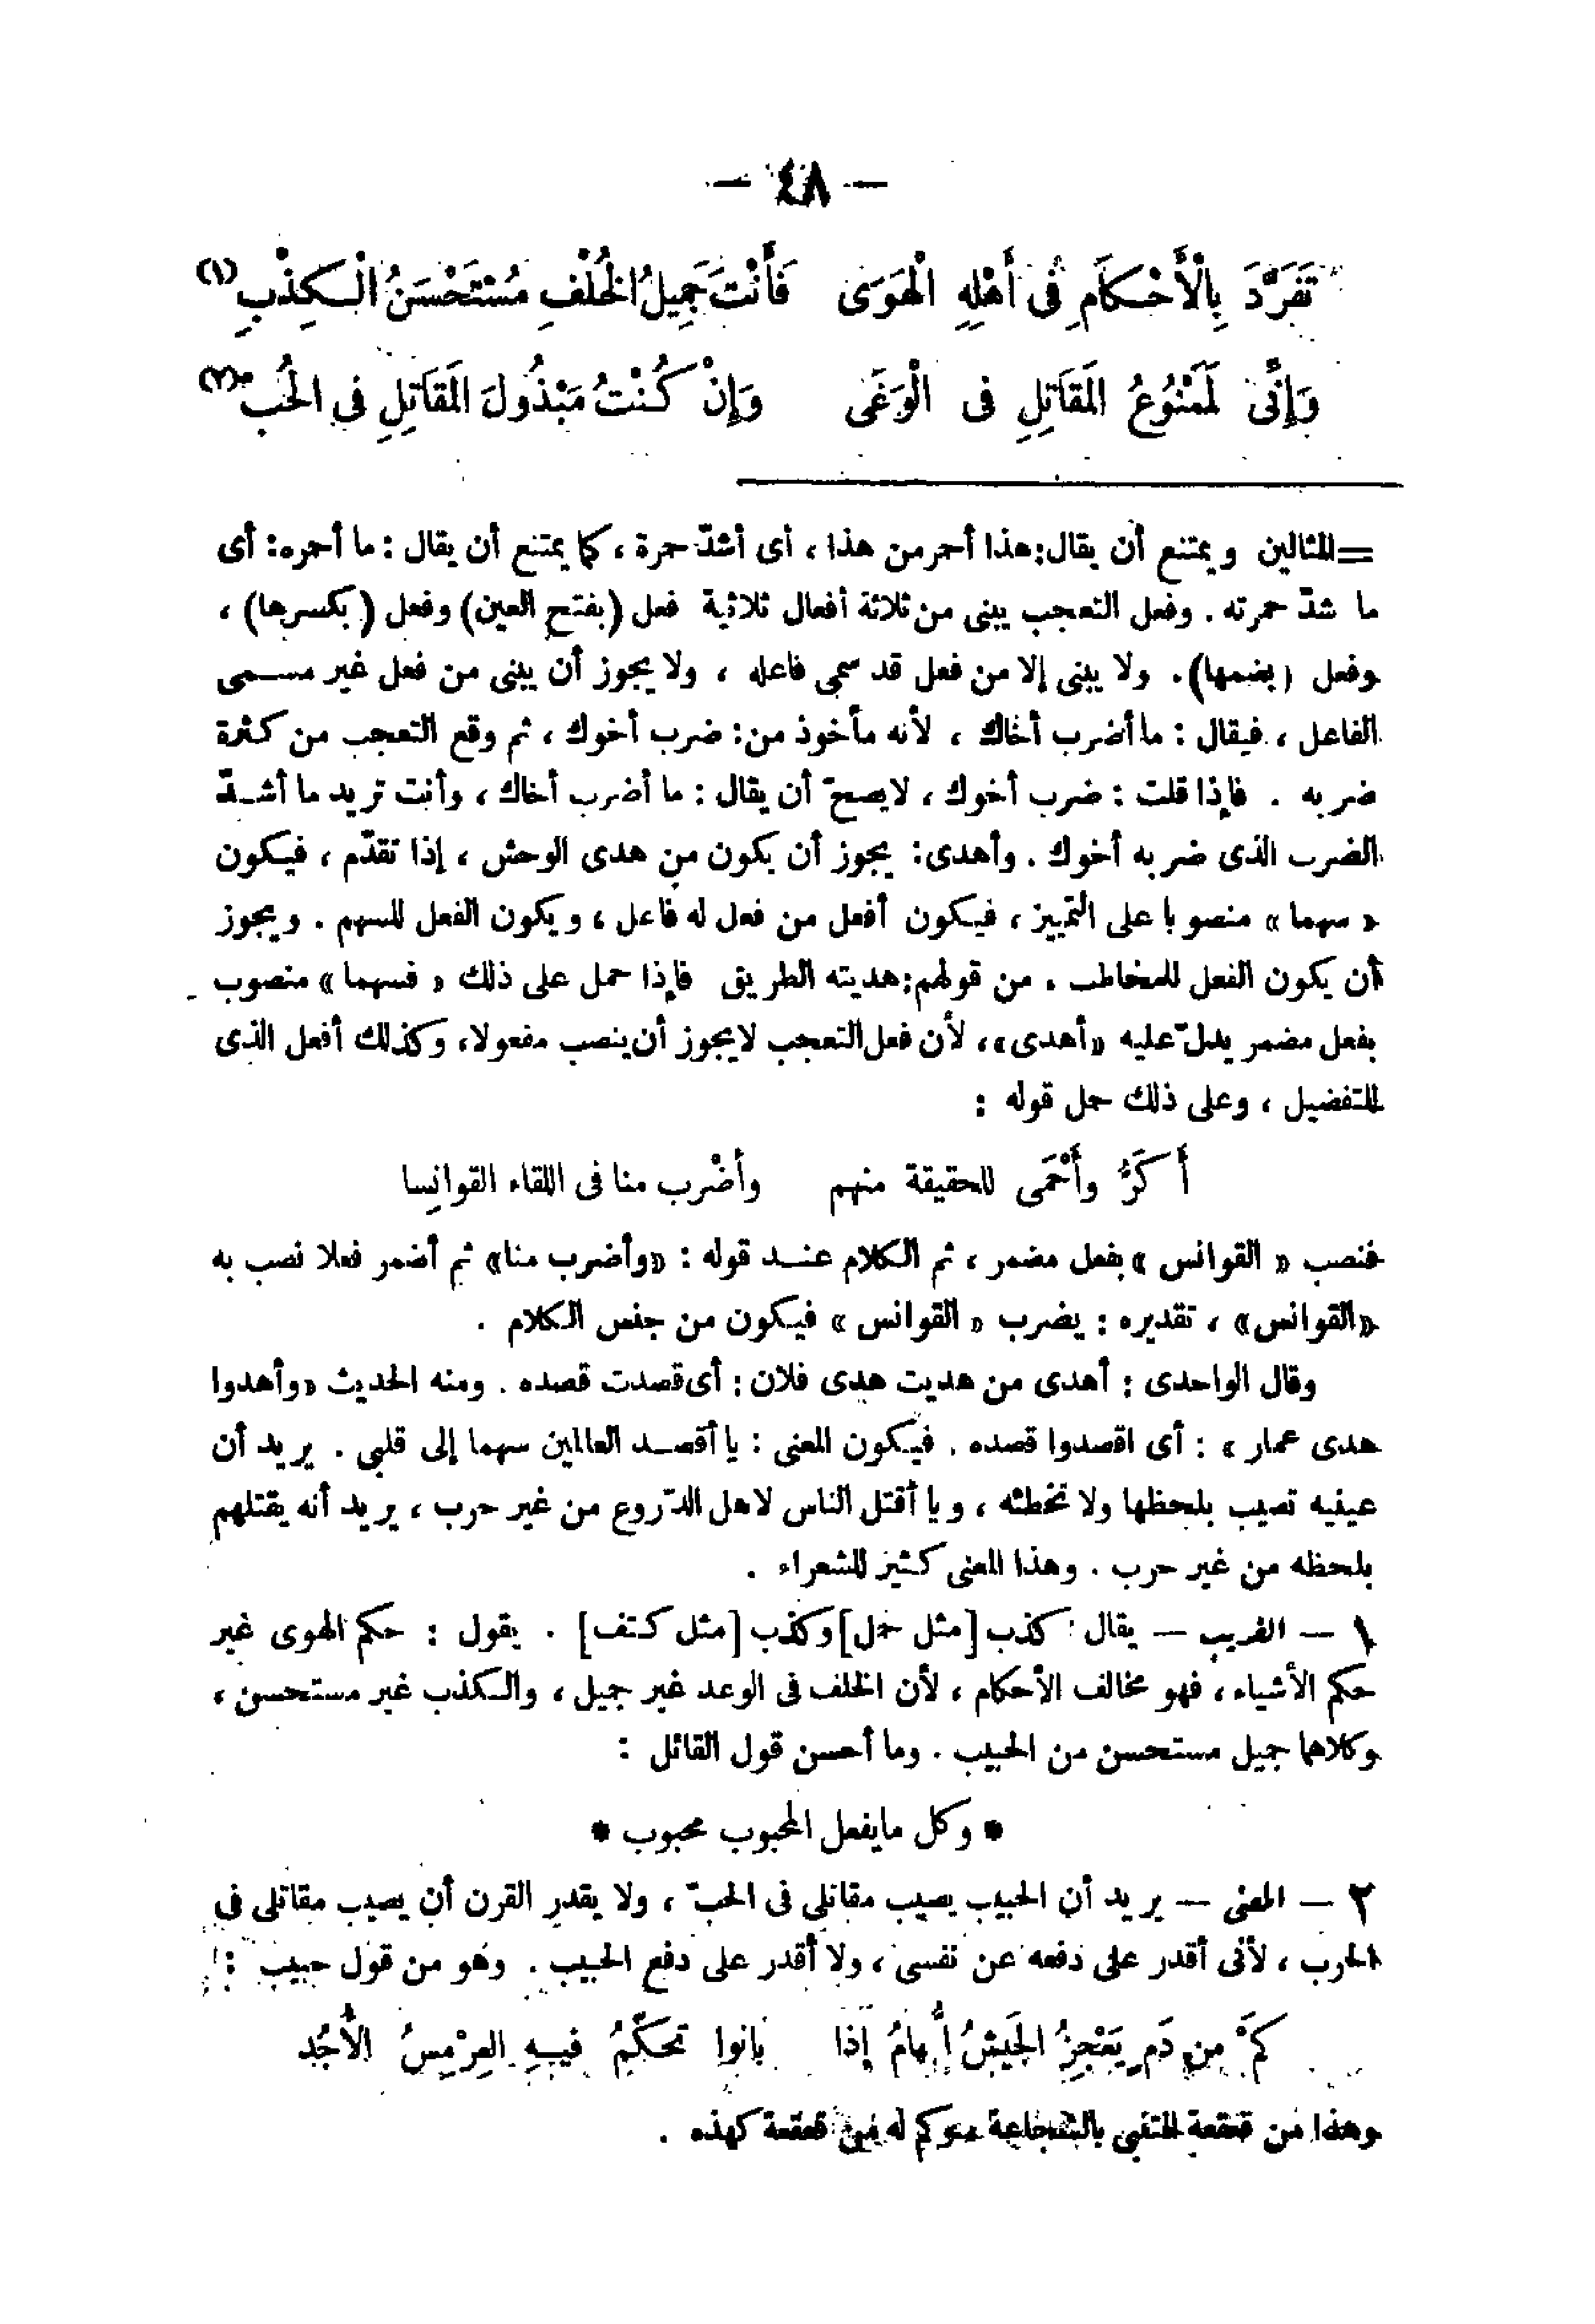 — ٤٨ —
تَفَرَّدَ بِالْأَحْكَامِ فِى أَهْلِهِ الْهَوَى فَأَنْتَ جَمِيلُ الْخُلْفِ مُسْتَحْسَنُ الْكِذْبِ (١)
وَإِنِّى لَمَمْنُوعُ المَقَاتِلِ فى الْوَغَى وَإِنْ كُنْتُ مَبْذُولَ المَقَاتِلِ فى الحُبّ (٢)
= المثالين ويمتنع أن يقال: هذا أحمر من هذا ، أى أشدّ حمرة ، كما يمتنع أن يقال : ما أحمره: أى
ما شدّ حمرته . وفعل التعجب يبنى من ثلاثة أفعال ثلاثية فعل (بفتح العين) وفعل (بكسرها) ،
وفعل (بضمها). ولا يبنى إلا من فعل قد سمى فاعله ، ولا يجوز أن يبنى من فعل غير مسمى
الفاعل ، فيقال : ما أضرب أخاك ، لأنه مأخوذ من: ضرب أخوك ، ثم وقع التعجب من كثرة
ضربه . فإذا قلت : ضرب أخوك ، لايصحّ أن يقال : ما أضرب أخاك ، وأنت تريد ما أشدّ
الضرب الذى ضربه أخوك . وأهدى: يجوز أن يكون من هدى الوحش ، إذا تقدّم ، فيكون
« سهما » منصوبا على التمييز ، فيكون أفعل من فعل له فاعل ، ويكون الفعل للسهم . ويجوز
أن يكون الفعل للمخاطب . من قولهم: هديته الطريق فإذا حمل على ذلك « فسهما » منصوب
بفعل مضمر يدلّ عليه «أهدى»، لأن فعل التعجب لايجوز أن ينصب مفعولا، وكذلك أفعل الذى
للتفضيل ، وعلى ذلك حمل قوله :
أَكَرُّ وأَحْمَى للحقيقة منهم وأضْرب منا فى اللقاء القوانِسا
فنصب « القوانس » بفعل مضمر ، تم الكلام عند قوله : «وأضرب منا» ثم أضمر فعلا نصب به
«القوانس» ، تقديره : يضرب « القوانس » فيكون من جنس الكلام .
وقال الواحدى : أهدى من هديت هدى فلان : أى قصدت قصده . ومنه الحديث «وأهدوا
هدى عمار » : أى اقصدوا قصده . فيكون المعنى : يا أقصد العالمين سهما إلى قلبى . يريد أن
عينيه تصيب بلحظها ولا تخطئه ، ويا أقتل الناس لاهل الدّروع من غير حرب ، يريد أنه يقتلهم
بلحظه من غير حرب . وهذا المعنى كثير للشعراء .
١ — الغريب — يقال : كذب [مثل حمل] وكذب [مثل كتف] . يقول : حكم الهوى غير
حكم الأشياء ، فهو مخالف الأحكام ، لأن الخلف فى الوعد غير جميل ، والكذب غير مستحسن ،
وكلاهما جميل مستحسن من الحبيب . وما أحسن قول القائل :
* وكل مايفعل المحبوب محبوب *
٢ — المعنى — يريد أن الحبيب يصيب مقاتلى فى الحبّ ، ولا يقدر القرن أن يصيب مقاتلى فى
الحرب ، لأنى أقدر على دفعه عن نفسى ، ولا أقدر على دفع الحبيب . وهو من قول حبيب :
كَمْ من دَمٍ يَعْجِزُ الجَيشُ اللُّهامُ إذا بانوا تحكّمُ فيهِ العِرْمِسُ الأُجُد
وهذا من قعقعة المتنبى بالشجاعة وكم له من قعقعة كهذه .